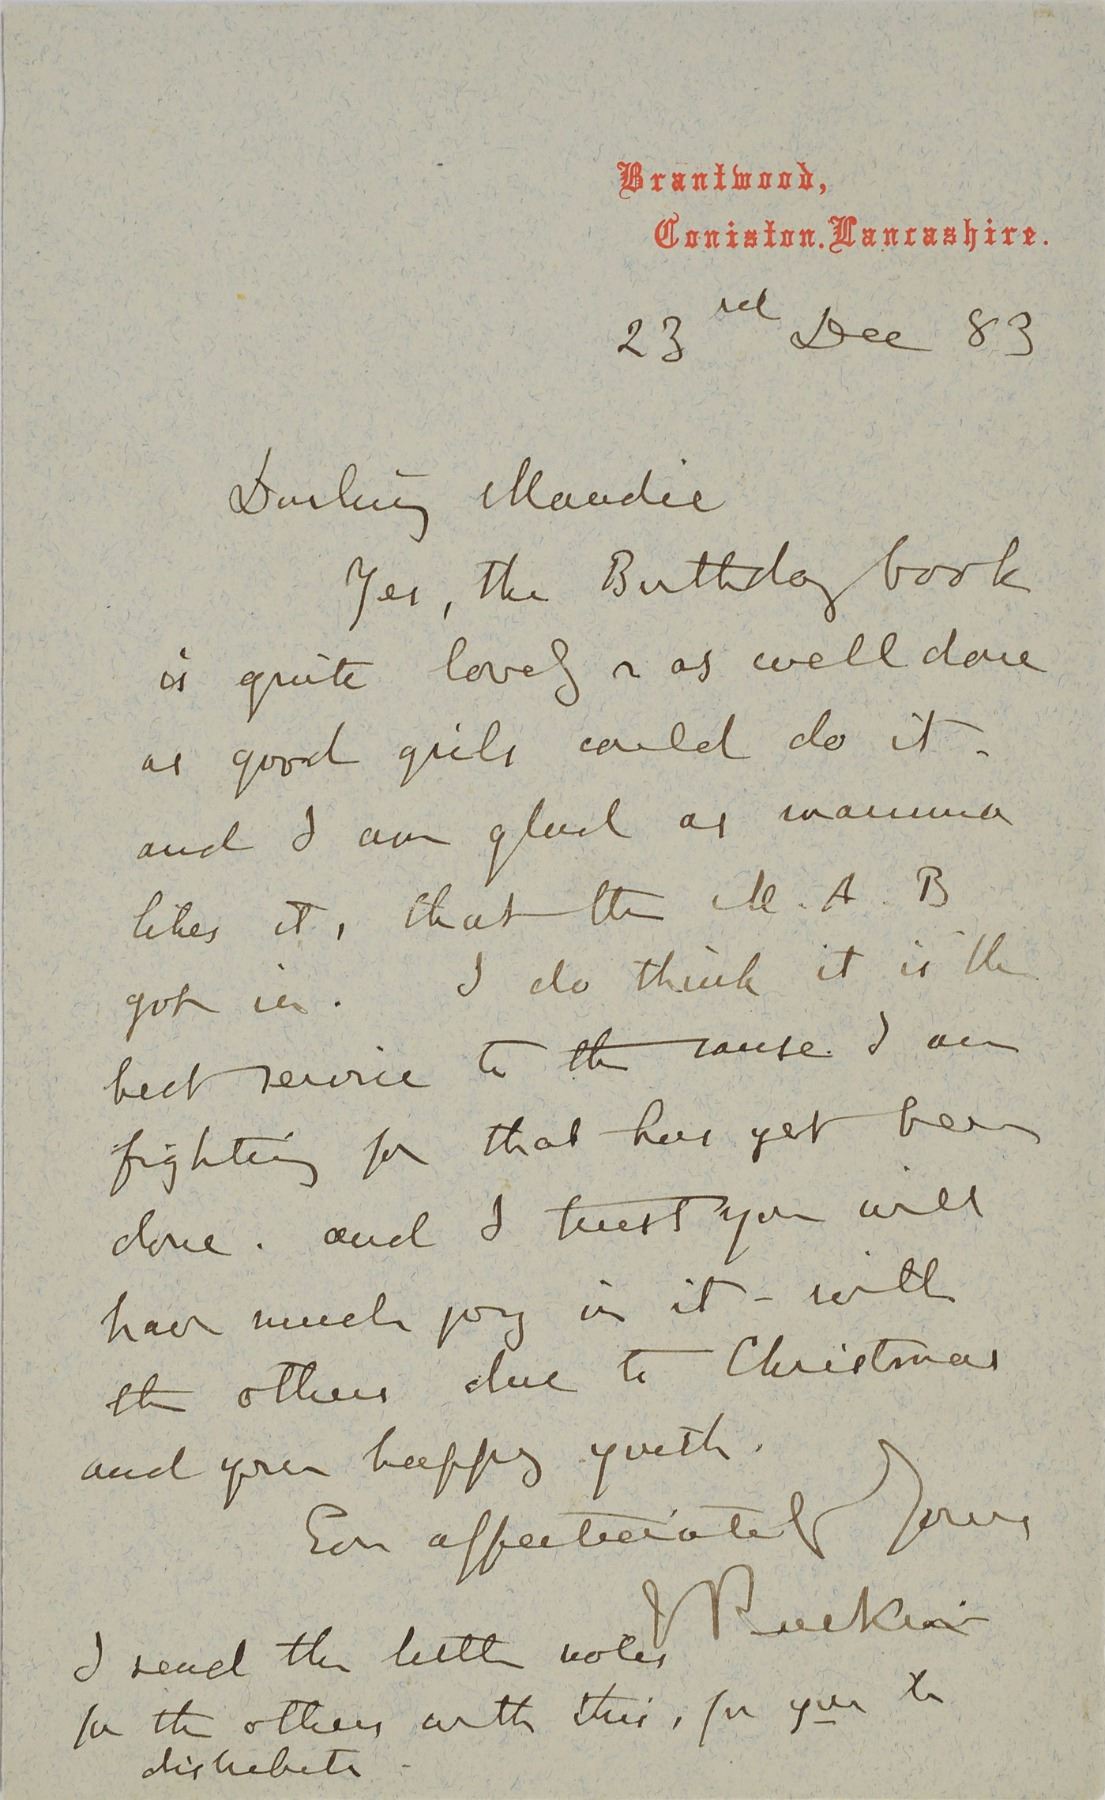 Brantwood,
Coniston. Lancashire.
23rd Dec 83
Darling Maudie
Yes, the Birthday book
is quite lovely & as well done
as good girls could do it -
and I am glad as mamma
likes it, that the M. A. B
got in. I do think it is the
best service to the cause I am
fighting for that has yet been
done. and I trust you will
have much joy in it - with
the others due to Christmas
and your happy youth.
Ever affectionately Yours
J Ruskin
I send the little notes
for the others with this, for you to
distribute -